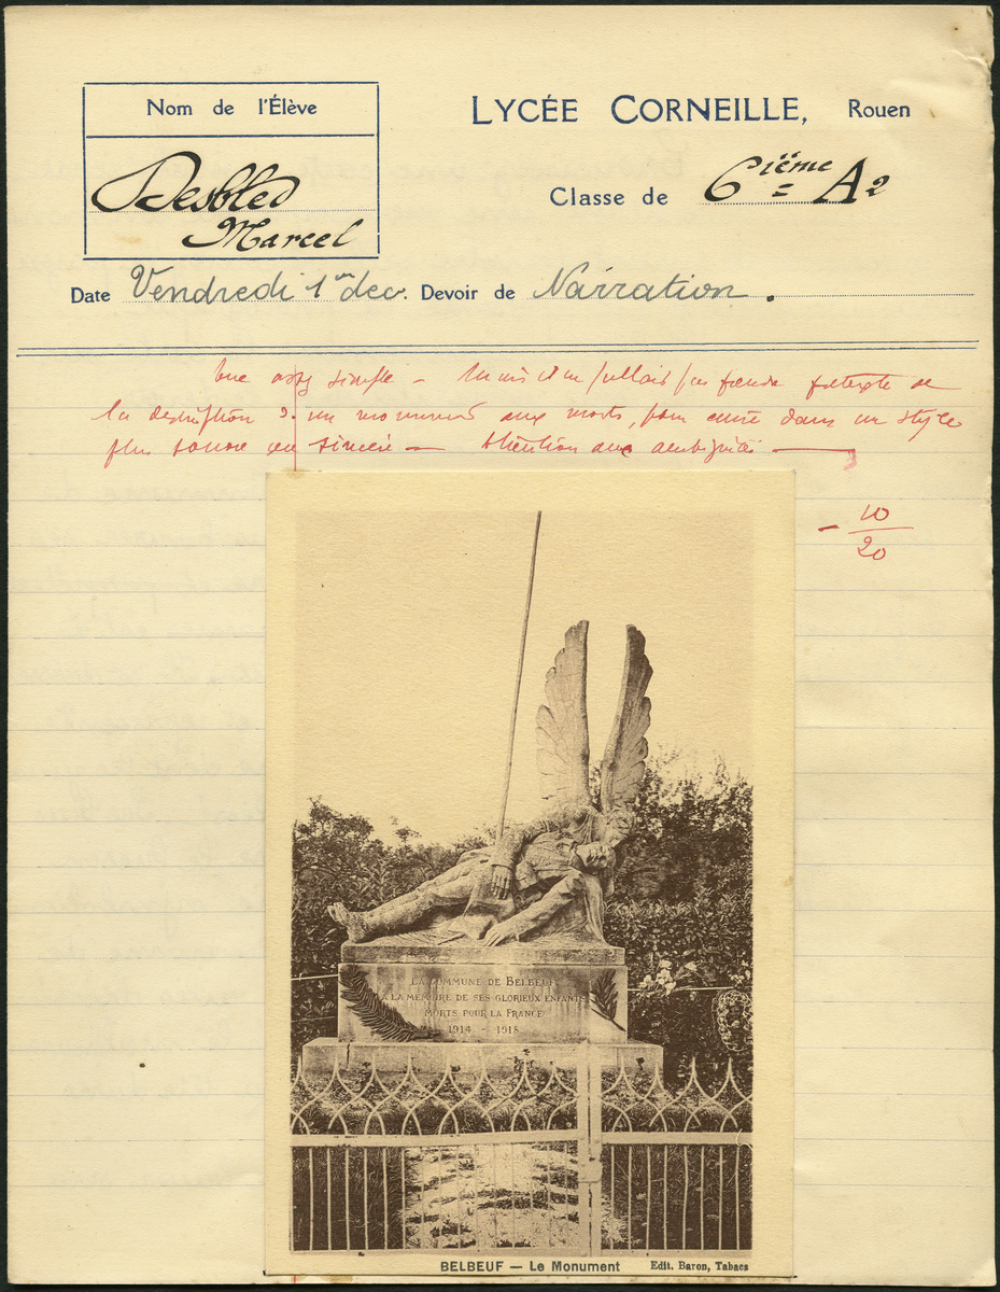 Nom de l'Élève
LYCÉE CORNEILLE, Rouen
Desbled
Marcel
Classe de 6ième A2
Date Vendredi 1er dec. Devoir de Narration.
assez simple - Mais il ne fallait pas prendre prétexte de
la description d'un monument aux morts, pour écrire dans un style
plus sonore que sincère — Attention aux ambiguïtés —
- 10
20
LA COMMUNE DE BELBEUF
A LA MÉMOIRE DE SES GLORIEUX ENFANTS
MORTS POUR LA FRANCE
1914 - 1918
BELBEUF — Le Monument Edit. Baron, Tabacs